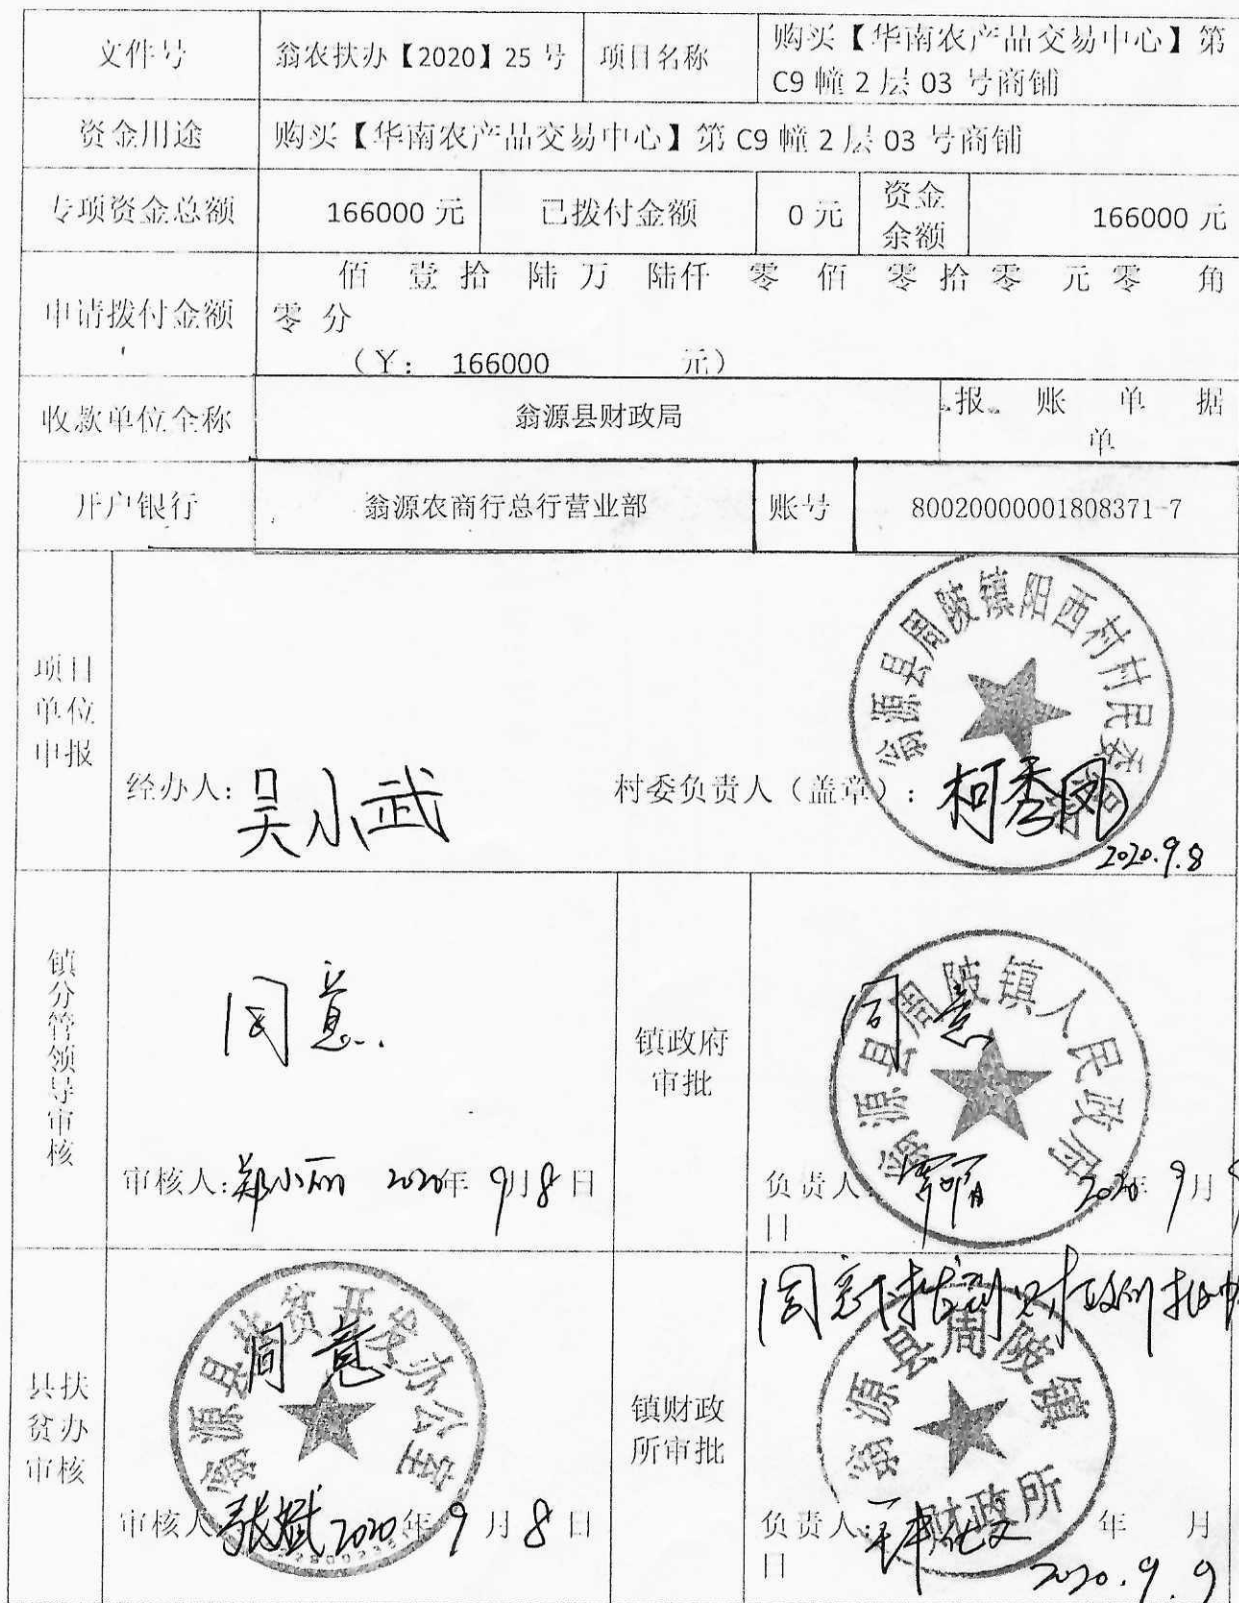 文件号
翁农扶办【2020】25 号
项目名称
购买【华南农产品交易中心】第
C9 幢 2 层 03 号商铺
资金用途
购买【华南农产品交易中心】第 C9 幢 2 层 03 号商铺
专项资金总额
166000 元
已拨付金额
0 元
资金
余额
166000 元
申请拨付金额
佰 壹 拾 陆 万 陆仟 零 佰 零 拾 零 元 零 角
零 分
（Y： 166000 元）
收款单位全称
翁源县财政局
报 账 单 据
单
开户银行
翁源农商行总行营业部
账号
80020000001808371-7
项目
单位
申报
经办人：吴小武
村委负责人（盖章）：柯秀凤
2020.9.8
翁源县周陂镇阳西村村民委员会
镇分管领导审核
同意.
审核人：郑小丽 2020年 9月 8 日
镇政府
审批
同意
翁源县周陂镇人民政府
负责人：
2020年 9月
日
县扶
贫办
审核
同意
翁源县扶贫开发办公室
审核人 张斌 2020 年 9 月 8 日
镇财政
所审批
翁源县周陂镇
财政所
负责人：
年 月
日
2020.9.9